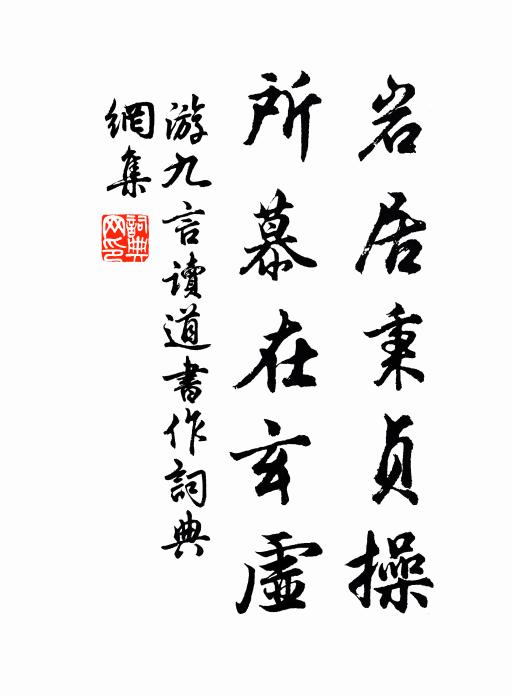 岩居秉贞操
所慕在玄虛
游九言讀道書作詞典
網集
詞典网印